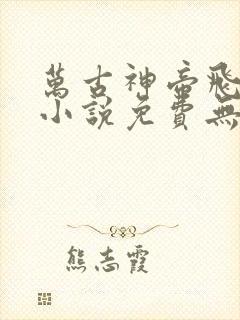 萬古神帝飛
小說免費無
熊志霞